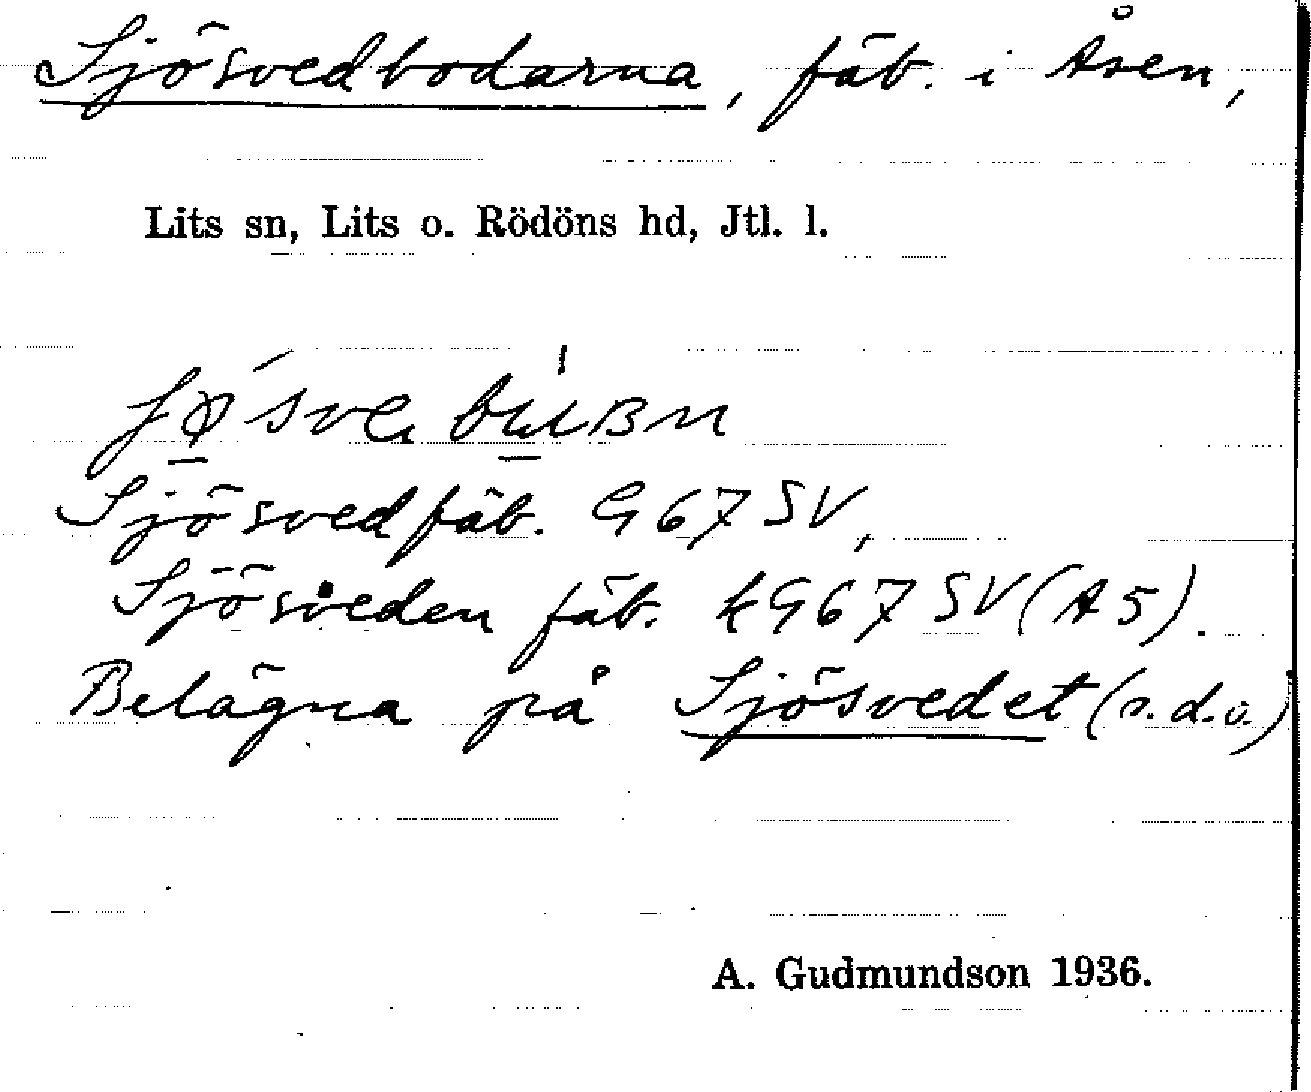 Sjösvedbodarna, fäb. i Åsen,
Lits sn, Lits o. Rödöns hd, Jtl. l.
Sjösvedfäb. G67SV,
Sjösveden fäb. kG67SV(A5).
Belägna på Sjösvedet (s.d.o.)
A. Gudmundson 1936.